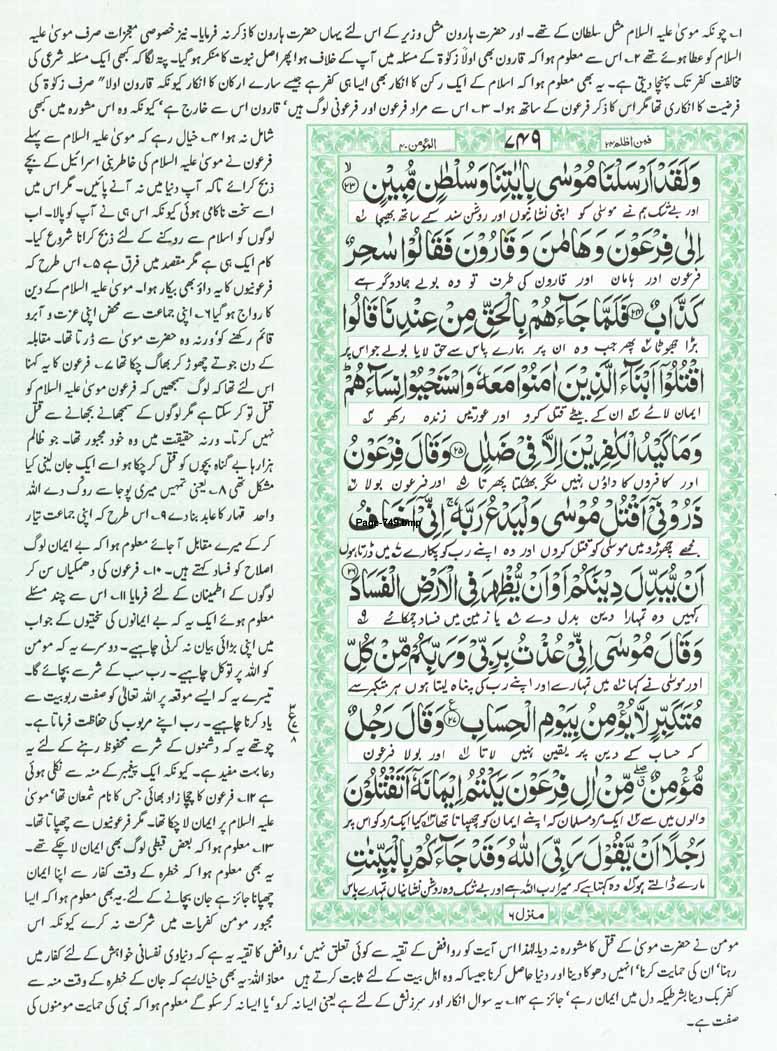 ۱؎ چونکہ موسیٰ علیہ السلام مثل سلطان کے تھے۔ اور حضرت ہارون مثل وزیر کے اس لئے یہاں حضرت ہارون کا ذکر نہ فرمایا۔ نیز خصوصی معجزات صرف موسیٰ علیہ
السلام کو عطا ہوئے تھے ۲؎ اس سے معلوم ہوا کہ قارون بھی اولاً زکوٰۃ کے مسئلہ میں آپ کے خلاف ہوا پھر اصل نبوت کا منکر ہو گیا۔ پتہ لگا کہ کبھی ایک مسئلہ شرعی کی
مخالفت کفر تک پہنچا دیتی ہے۔ یہ بھی معلوم ہوا کہ اسلام کے ایک رکن کا انکار بھی ایسا ہی کفر ہے جیسے سارے ارکان کا انکار کیونکہ قارون اولا" صرف زکوٰۃ کی
فرضیت کا انکاری تھا مگر اس کا ذکر فرعون کے ساتھ ہوا۔ ۳؎ اس سے مراد فرعون اور فرعونی لوگ ہیں' قارون اس سے خارج ہے' کیونکہ وہ اس مشورہ میں کبھی
فمن اظلم ۲۴ ۷۴۹ المؤمن ۴۰
وَلَقَدْ اَرْسَلْنَا مُوْسٰى بِاٰيٰتِنَا وَسُلْطٰنٍ مُّبِيْنٍ ۲۳
اور بے شک ہم نے موسیٰ کو اپنی نشانیوں اور روشن سند کے ساتھ بھیجا
اِلٰى فِرْعَوْنَ وَهَامٰنَ وَقَارُوْنَ فَقَالُوْا سٰحِرٌ
فرعون اور ہامان اور قارون کی طرف تو وہ بولے جادوگر ہے
كَذَّابٌ ۲۴ فَلَمَّا جَآءَهُمْ بِالْحَقِّ مِنْ عِنْدِنَا قَالُوا
بڑا جھوٹا پھر جب وہ ان پر ہمارے پاس سے حق لایا بولے جو اس پر
اقْتُلُوْٓا اَبْنَآءَ الَّذِيْنَ اٰمَنُوْا مَعَهٗ وَاسْتَحْيُوْا نِسَآءَهُمْ
ایمان لائے ان کے بیٹے قتل کرو اور عورتیں زندہ رکھو
وَمَا كَيْدُ الْكٰفِرِيْنَ اِلَّا فِيْ ضَلٰلٍ ۲۵ وَقَالَ فِرْعَوْنُ
اور کافروں کا داؤں نہیں مگر بھٹکتا پھرتا اور فرعون بولا
ذَرُوْنِيْٓ اَقْتُلْ مُوْسٰى وَلْيَدْعُ رَبَّهٗ اِنِّيْٓ اَخَافُ
Page-749.bmp
مجھے چھوڑو میں موسیٰ کو قتل کروں اور وہ اپنے رب کو پکارے میں ڈرتا ہوں
اَنْ يُّبَدِّلَ دِيْنَكُمْ اَوْ اَنْ يُّظْهِرَ فِي الْاَرْضِ الْفَسَادَ ۲۶
کہیں وہ تمہارا دین بدل دے یا زمین میں فساد چمکائے
وَقَالَ مُوْسٰٓى اِنِّيْ عُذْتُ بِرَبِّيْ وَرَبِّكُمْ مِّنْ كُلِّ
اور موسیٰ نے کہا میں تمہارے اور اپنے رب کی پناہ لیتا ہوں ہر متکبر سے
مُتَكَبِّرٍ لَّا يُؤْمِنُ بِيَوْمِ الْحِسَابِ ۲۷ وَقَالَ رَجُلٌ
کہ حساب کے دن پر یقین نہیں لاتا اور بولا فرعون
مُّؤْمِنٌ مِّنْ اٰلِ فِرْعَوْنَ يَكْتُمُ اِيْمَانَهٗٓ اَتَقْتُلُوْنَ
والوں میں سے ایک مرد مسلمان کہ اپنے ایمان کو چھپاتا تھا کیا ایک مرد کو اس پر
رَجُلًا اَنْ يَّقُوْلَ رَبِّيَ اللّٰهُ وَقَدْ جَآءَكُمْ بِالْبَيِّنٰتِ
مارے ڈالتے ہو کہ وہ کہتا ہے کہ میرا رب اللہ ہے اور بے شک وہ روشن نشانیاں تمہارے پاس
منزل ۶
شامل نہ ہوا ۴؎ خیال رہے کہ موسیٰ علیہ السلام سے پہلے
فرعون نے موسیٰ علیہ السلام کی خاطر بنی اسرائیل کے بچے
ذبح کرائے تاکہ آپ دنیا میں نہ آنے پائیں۔ مگر اس میں
اسے سخت ناکامی ہوئی کیونکہ اس ہی نے آپ کو پالا۔ اب
لوگوں کو اسلام سے روکنے کے لئے ذبح کرانا شروع کیا۔
کام ایک ہی ہے مگر مقصد میں فرق ہے ۵؎ اس طرح کہ
فرعونیوں کا یہ داؤ بھی بیکار ہوا۔ موسیٰ علیہ السلام کے دین
کا رواج ہو گیا ۶؎ اپنی جماعت سے محض اپنی عزت و آبرو
قائم رکھنے کو' ورنہ وہ حضرت موسیٰ سے ڈرتا تھا۔ مقابلہ
کے دن جوتے چھوڑ کر بھاگ چکا تھا ۷؎ فرعون کا یہ کہنا
اس لئے تھا کہ لوگ سمجھیں کہ فرعون موسیٰ علیہ السلام کو
قتل تو کر سکتا ہے مگر لوگوں کے سمجھانے بجھانے سے قتل
نہیں کرتا۔ ورنہ حقیقت میں وہ خود مجبور تھا۔ جو ظالم
ہزارہا بے گناہ بچوں کو قتل کر چکا ہو اسے ایک جان لینی کیا
مشکل تھی ۸؎ یعنی تمہیں میری پوجا سے روک دے اللہ
واحد قہار کا عابد بنا دے ۹؎ اس طرح کہ اپنی جماعت تیار
کر کے میرے مقابل آ جائے معلوم ہوا کہ بے ایمان لوگ
اصلاح کو فساد کہتے ہیں۔ ۱۰؎ فرعون کی دھمکیاں سن کر
لوگوں کے اطمینان کے لئے فرمایا ۱۱؎ اس سے چند مسئلے
معلوم ہوئے ایک یہ کہ بے ایمانوں کی سختیوں کے جواب
میں اپنی بڑائی بیان نہ کرنی چاہیے۔ دوسرے یہ کہ مومن
کو اللہ پر توکل چاہیے۔ رب سب کے شر سے بچائے گا۔
تیسرے یہ کہ ایسے موقعہ پر اللہ تعالیٰ کو صفت ربوبیت سے
یاد کرنا چاہیے۔ رب اپنے مربوب کی حفاظت فرماتا ہے۔
چوتھے یہ کہ دشمنوں کے شر سے محفوظ رہنے کے لئے یہ
دعا بہت مفید ہے۔ کیونکہ ایک پیغمبر کے منہ سے نکلی ہوئی
ہے ۱۲؎ فرعون کا چچا زاد بھائی جس کا نام شمعان تھا' موسیٰ
علیہ السلام پر ایمان لا چکا تھا۔ مگر فرعونیوں سے چھپاتا تھا۔
۱۳؎ معلوم ہوا کہ بعض قبطی لوگ بھی ایمان لا چکے تھے۔
یہ بھی معلوم ہوا کہ خطرہ کے وقت کفار سے اپنا ایمان
چھپانا جائز ہے جان بچانے کے لئے۔ یہ بھی معلوم ہوا کہ ایسا
مجبور مومن کفریات میں شرکت نہ کرے کیونکہ اس
مومن نے حضرت موسیٰ کے قتل کا مشورہ نہ دیا۔ لہٰذا اس آیت کو روافض کے تقیہ سے کوئی تعلق نہیں' روافض کا تقیہ یہ ہے کہ دنیاوی نفسانی خواہش کے لئے کفار میں
رہنا' ان کی حمایت کرنا' انہیں دھوکا دینا اور دنیا حاصل کرنا جیسا کہ وہ اہل بیت کے لئے ثابت کرتے ہیں معاذ اللہ۔ یہ بھی خیال رہے کہ جان کے خطرہ کے وقت منہ سے
کفر بک دینا بشرطیکہ دل میں ایمان رہے' جائز ہے ۱۴؎ یہ سوال انکار اور سرزنش کے لئے ہے یعنی ایسا نہ کرو' یا ایسا نہ کر سکو گے معلوم ہوا کہ نبی کی حمایت مومنوں کی
صفت ہے۔